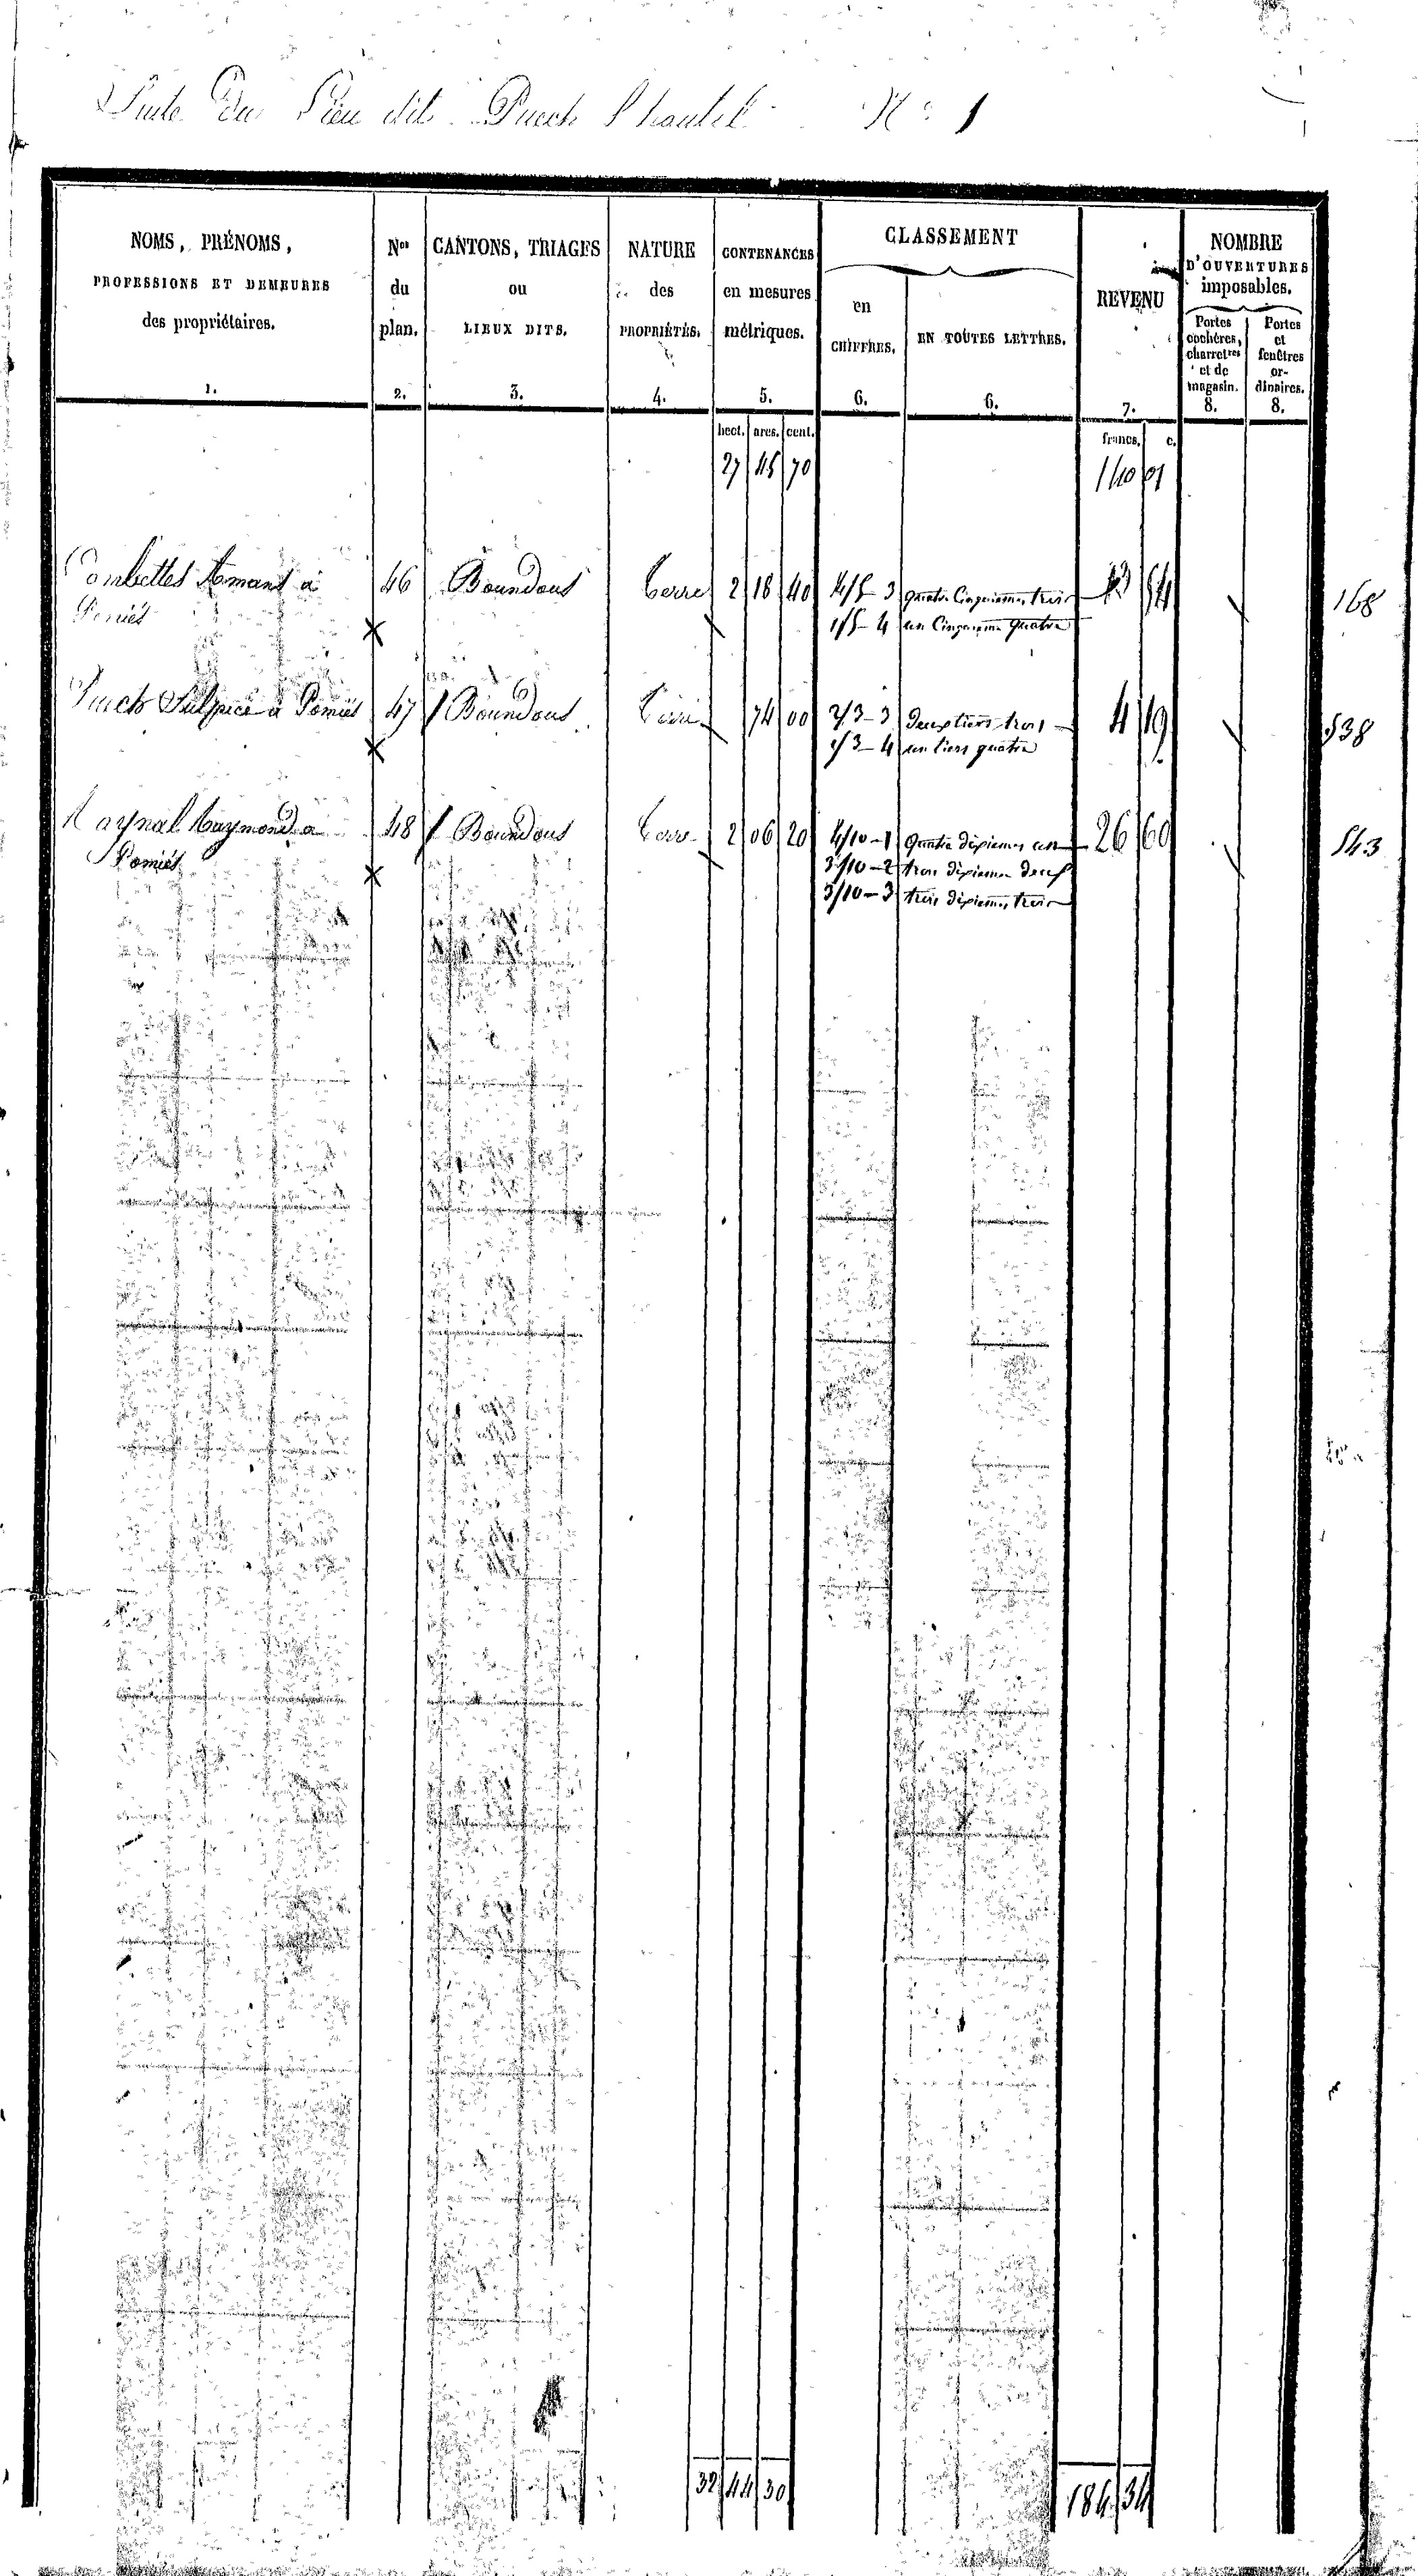 Suite du Lieu dit Puech N° 1
NOMS, PRÉNOMS,
PROFESSIONS ET DEMEURES
des propriétaires.
1.
Nos
du
plan.
2.
CANTONS, TRIAGES
ou
LIEUX DITS.
3.
NATURE
des
PROPRIÉTÉS.
4.
CONTENANCES
en mesures
métriques.
5.
CLASSEMENT
en
CHIFFRES.
6.
EN TOUTES LETTRES.
6.
REVENU
7.
NOMBRE
D'OUVERTURES
imposables.
Portes
cochères,
charretres
et de
magasin.
8.
Portes
et
fenêtres
or-
dinaires.
8.
hect. ares. cent. francs. c.
27 45 70 140 01
Combettes Amans à 46 Boundous Terre 2 18 40 4/5 - 3 quatre Cinquièmes trois 13 54 168
Pomiés 1/5 - 4 un Cinquième quatre
Puech Sulpice à Pomiés 47 Boundous Terre 74 00 2/3 - 3 deux tiers trois 4 19 538
1/3 - 4 un tiers quatre
Raynal Raymond à 48 Boundous Terre 2 06 20 4/10 - 1 quatre dixiemes un 26 60 543
Pomiés 3/10 - 2 trois dixiemes deux
3/10 - 3 trois dixiemes trois
32 44 30 184 34